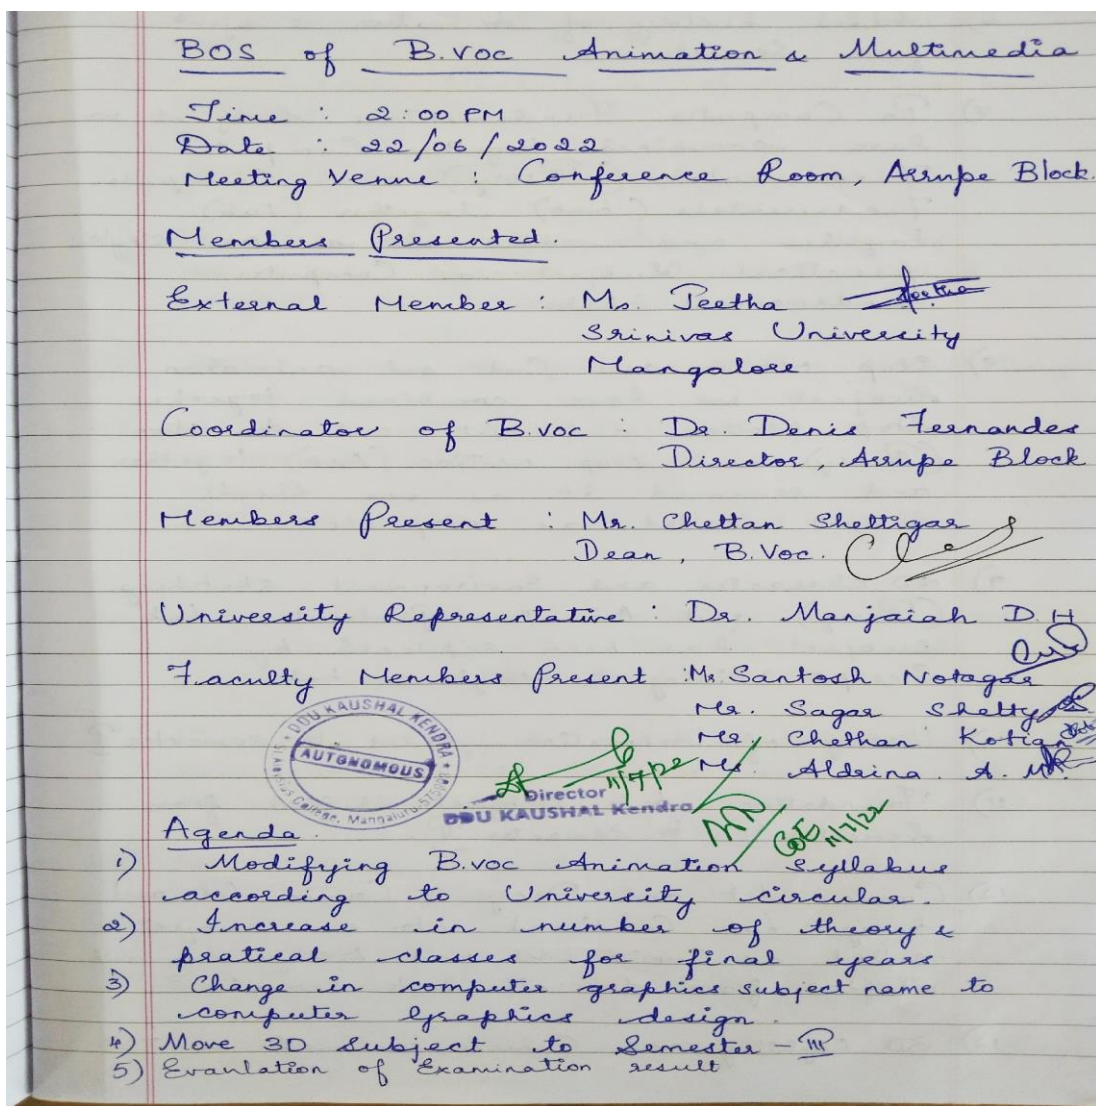 BOS of B.voc Animation & Multimedia
Time : 2:00 PM
Date : 22/06/2022
Meeting Venue : Conference Room, Arrupe Block.
Members Presented.
External Member : Ms. Jeetha
Srinivas University
Mangalore
Coordinator of B.voc : Dr. Denis Fernandes
Director, Arrupe Block
Members Present : Mr. Chettan Shettigar
Dean, B.Voc.
University Representative : Dr. Manjaiah D.H
Faculty Members Present : Mr Santosh Notagar
Mr. Sagar Shetty
Mr. Chethan Kotian
Ms. Aldrina. A. M.
DDU KAUSHAL KENDRA
AUTONOMOUS
St Aloysius College, Mangaluru-575003
11/7/22
Director
DDU KAUSHAL Kendra
CoE 11/7/22
Agenda.
1) Modifying B.voc Animation Syllabus
according to University circular.
2) Increase in number of theory &
pratical classes for final years
3) Change in computer graphics subject name to
computer Graphics design.
4) Move 3D Subject to Semester - III
5) Evanlation of Examination result